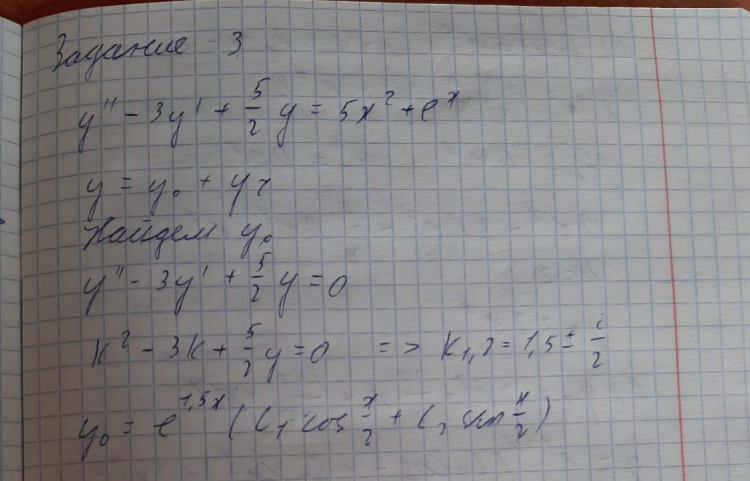 Задание 3
y'' - 3y' + 5/2 y = 5x² + e^x
y = y₀ + yч
Найдем y₀
y'' - 3y' + 5/2 y = 0
k² - 3k + 5/2 y = 0 => k₁,₂ = 1,5 ± i/2
y₀ = e^1,5x (C₁ cos x/2 + C₂ sin x/2)